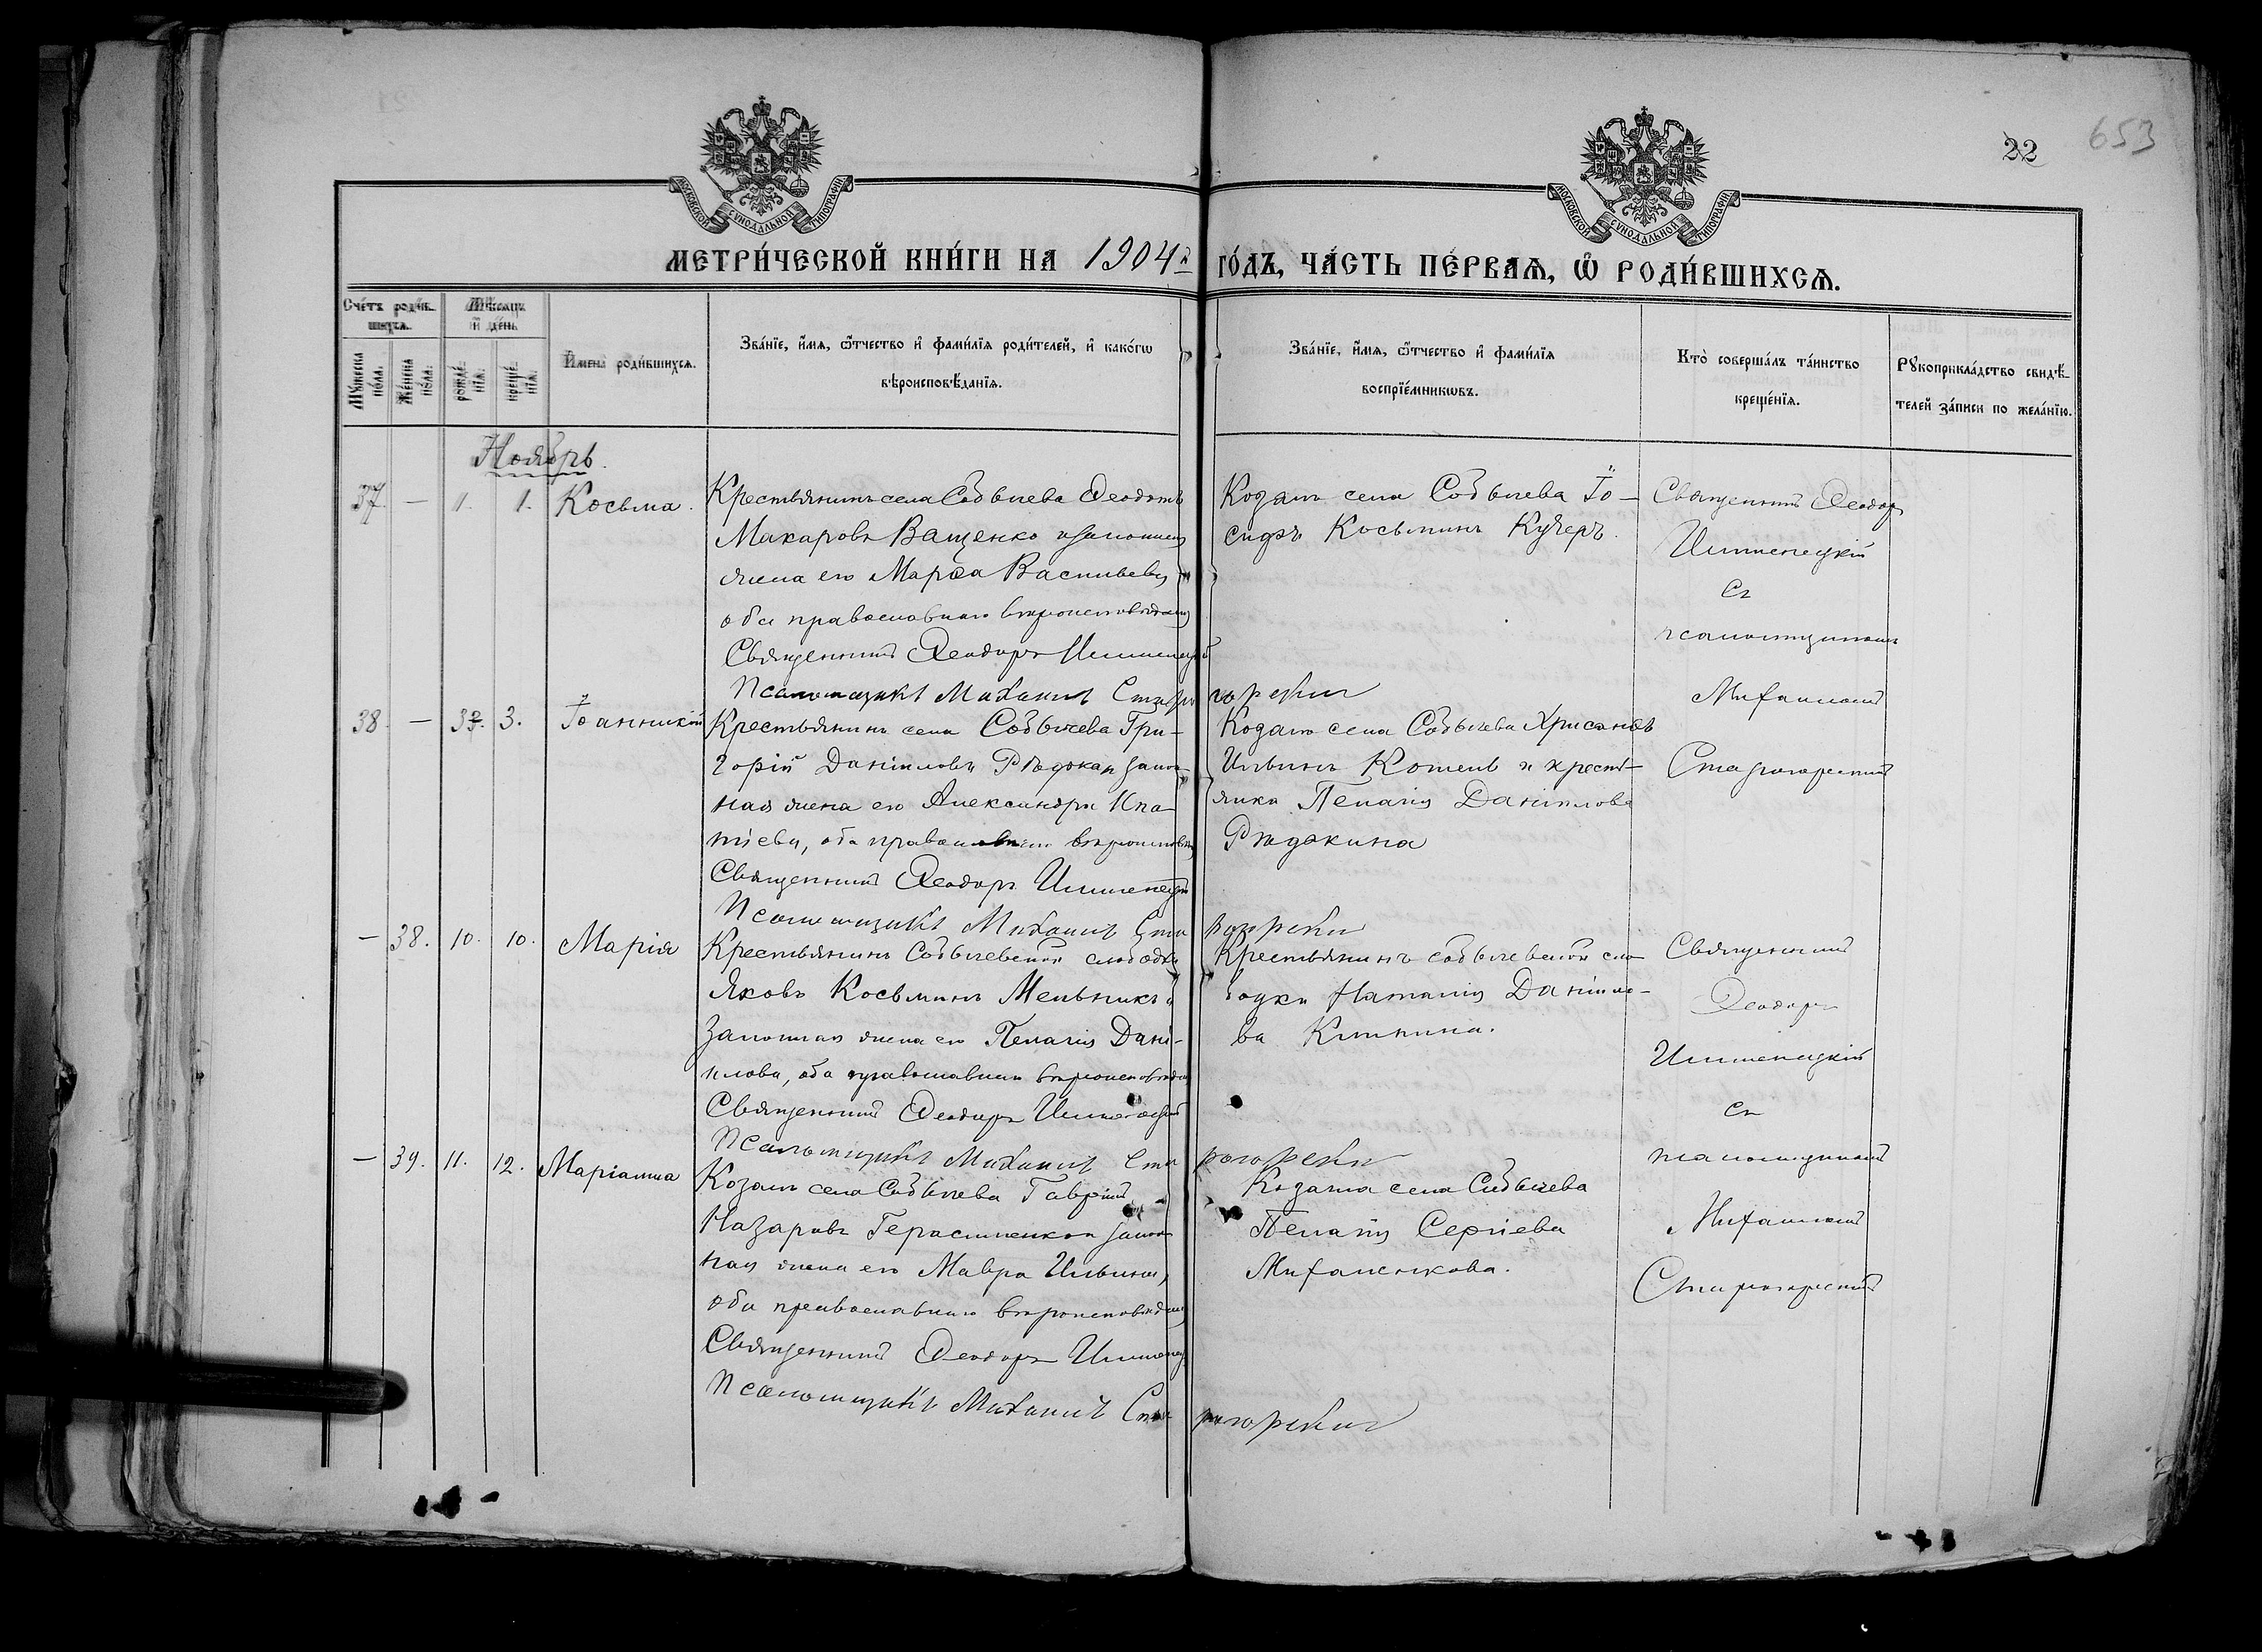 653
22
МОСКОВСКОЙ СѴНОДАЛЬНОЙ ТИПОГРАФІИ
МОСКОВСКОЙ СѴНОДАЛЬНОЙ ТИПОГРАФІИ
МЕТРИ́ЧЕСКОЙ КНИ́ГИ НА 1904й ГО́ДЪ, ЧА́СТЬ ПЕ́РВАЯ, Ѽ РОДИ́ВШИХСЯ.
Сче́тъ роди́в-
шихся.
Му́жеска по́ла.
Же́нска по́ла.
Мѣ́сяцъ
и҆ де́нь
рожде́нїя.
креще́нїя.
И҆мена̀ роди́вшихся.
Зва́нїе, и҆́мя, ѻ҆́тчество и҆ фами́лїя роди́телей, и҆ како́гѡ
вѣроисповѣ́данїя.
Зва́нїе, и҆́мя, ѻ҆́тчество и҆ фами́лїя
воспрїе́мникѡвъ.
Кто̀ соверша́лъ та́инство
креще́нїя.
Рꙋкоприкла́дство свидѣ́-
телей за́писи по жела́нїю.
Ноябрь.
37. — 1. 1. Косьма.
Крестьянинъ села Собычева Ѳеодотъ
Макаровъ Ващенко и законная
жена его Марѳа Васильева
оба православнаго вѣроисповѣданія
Священникъ Ѳеодоръ
Псаломщикъ Михаилъ Старогорскій
Козакъ села Собычева Іо-
сифъ Косьминъ Кучеръ.
Священникъ Ѳеодоръ
съ
псаломщикомъ
Михаиломъ
Старогорскимъ
38. — 3. 3. Іоанникій
Крестьянинъ села Собычева Гри-
горій Даніиловъ Рѣдька и закон-
ная жена его Александра Ипа-
тіева, оба православнаго вѣроисповѣд
Священникъ Ѳеодоръ
Псаломщикъ Михаилъ Старогорскій
Козакъ села Собычева Хрисанѳъ
Ильинъ Кошель и крестья-
янка Пелагія Даніилова
Рѣдькина
— 38. 10. 10. Марія
Крестьянинъ Собычевской слободки
Яковъ Косьминъ Мельникъ и
законная жена его Пелагія Дані-
илова, оба православнаго вѣроисповѣд
Священникъ Ѳеодоръ
Псаломщикъ Михаилъ Старогорскій
Крестьянинъ собычевской сло-
бодки Наталія Даніило-
ва
Священникъ
Ѳеодоръ
съ
псаломщикомъ
Михаиломъ
Старогорскимъ
— 39. 11. 12. Маріамна
Козакъ села Собычева Гавріилъ
Назаровъ Герасименко и закон
ная жена его Мавра Ильина,
оба православнаго вѣроисповѣдан
Священникъ Ѳеодоръ
Псаломщикъ Михаилъ Старогорскій
Козачка села Собычева
Пелагія Сергіева
Михаленкова.